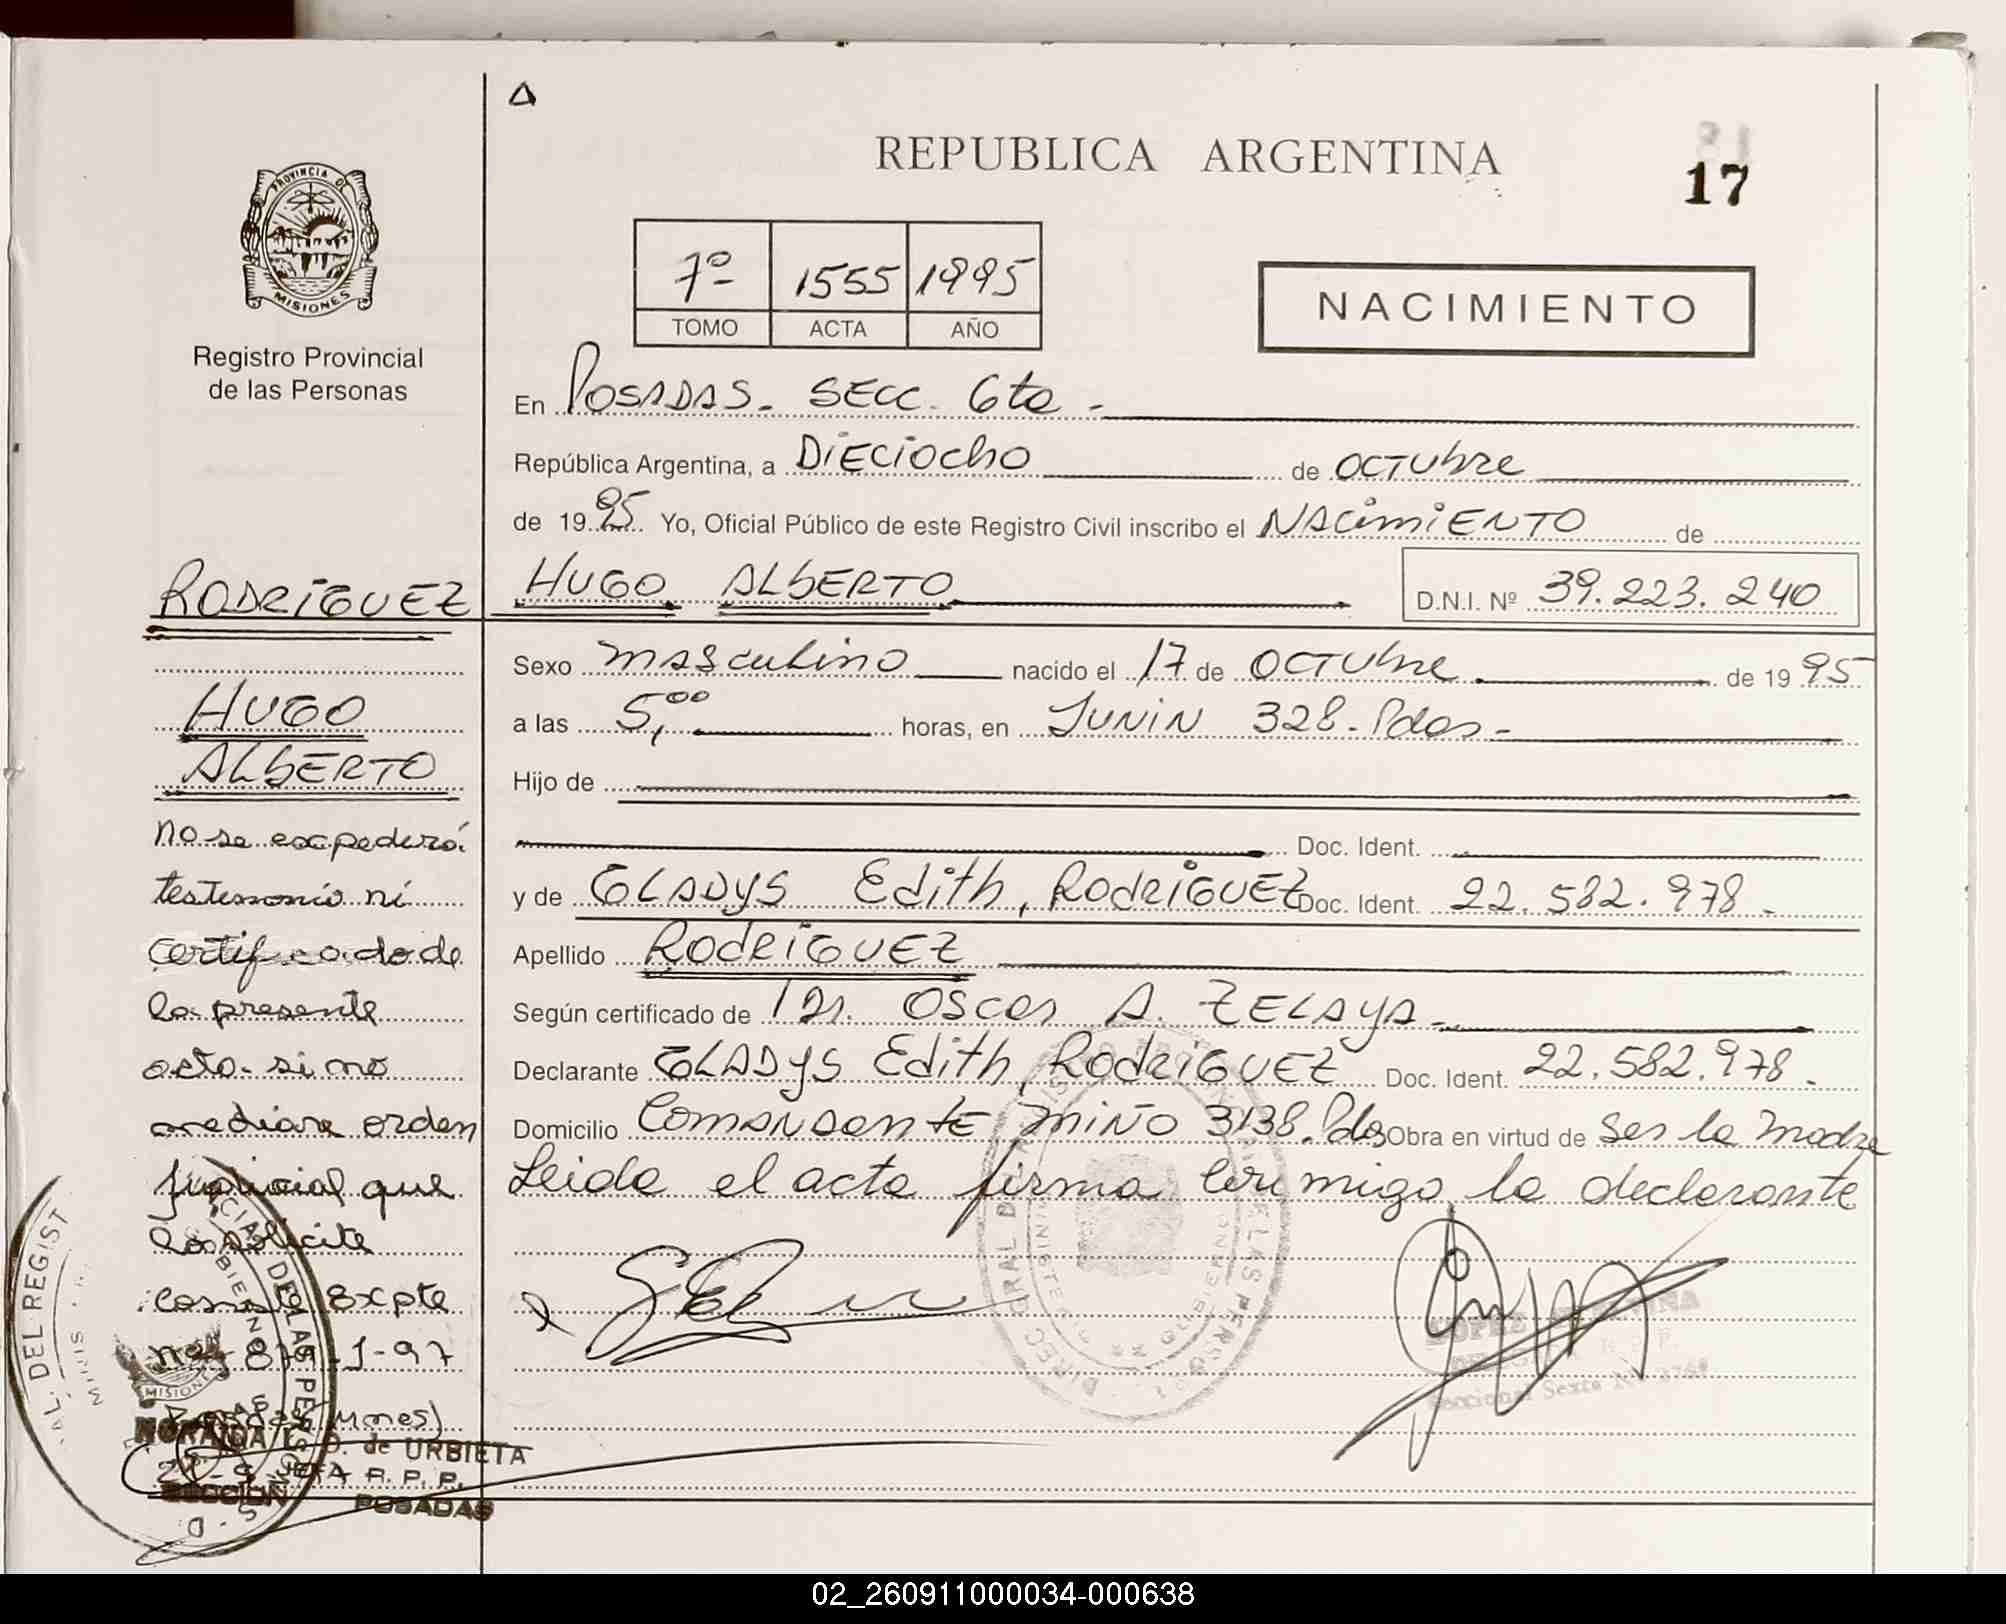 REPUBLICA ARGENTINA
17
PROVINCIA DE
MISIONES
Registro Provincial
de las Personas
7º- 1555 1995
TOMO ACTA AÑO
NACIMIENTO
En POSADAS. SECC. 6ta -
República Argentina, a DIECIOCHO de OCTUBRE
de 1995 Yo, Oficial Público de este Registro Civil inscribo el NACIMIENTO de
RODRIGUEZ HUGO ALBERTO D.N.I. Nº 39.223.240
Sexo masculino nacido el 17 de OCTUBRE de 1995
a las 5,00 horas, en JUNIN 328. Pdas-
Hijo de
Doc. Ident.
y de GLADYS Edith, RODRIGUEZ Doc. Ident. 22.582.978.
Apellido RODRIGUEZ
Según certificado de Dr. OSCAR A. ZELAYA-
Declarante GLADYS Edith, RODRIGUEZ Doc. Ident. 22.582.978.
Domicilio Comandante MIÑO 3138. Pdas Obra en virtud de ser la madre
Leida el acta firma conmigo la declarante
HUGO
ALBERTO
no se expederá
testimonio ni
certificado de
la presente
acta si no
mediare orden
judicial que
lo solicite
Expte
1-97
NORAIDA L. D. de URBIETA
JEFA R. P. P.
POSADAS
02_260911000034-000638